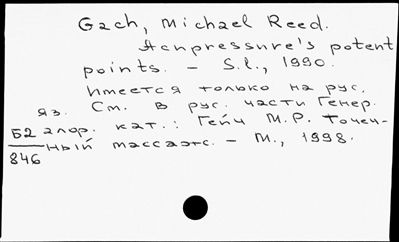 Gach, Michael Reed.
Acupressure's potent
points. – S.l., 1990.
Имеется только на рус.
яз. См. в рус. части Генер.
алф. кат.: Гейч М.Р. Точеч-
ный массаж. – М., 1998.
Б2
846